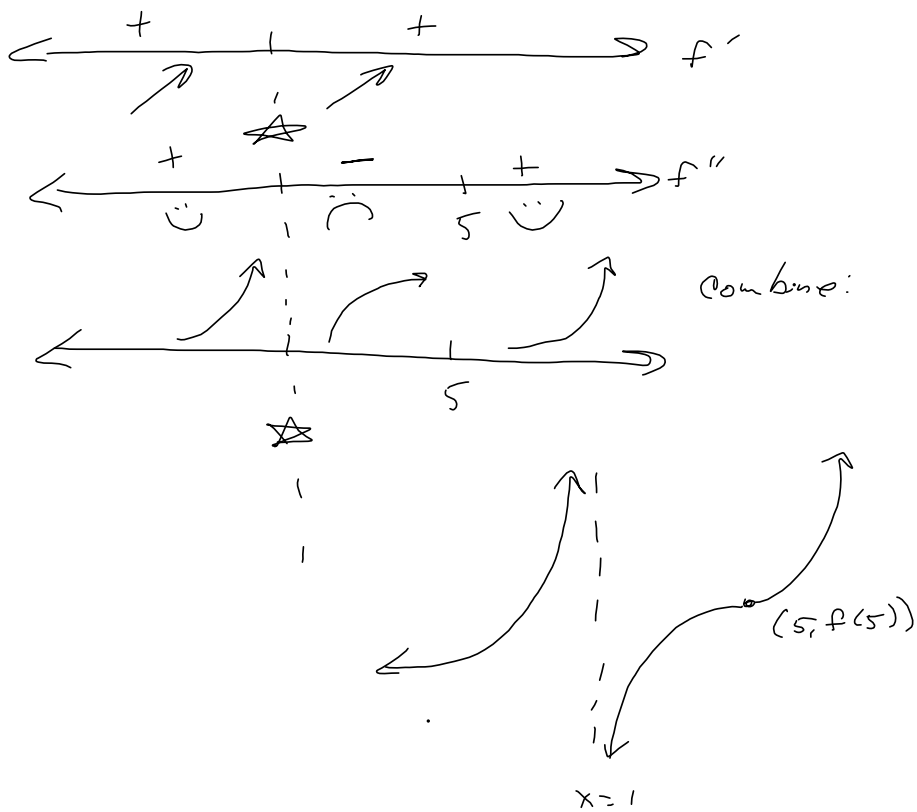 + +
f′
+ − +
f″
5
combine:
5
(5, f(5))
x = 1